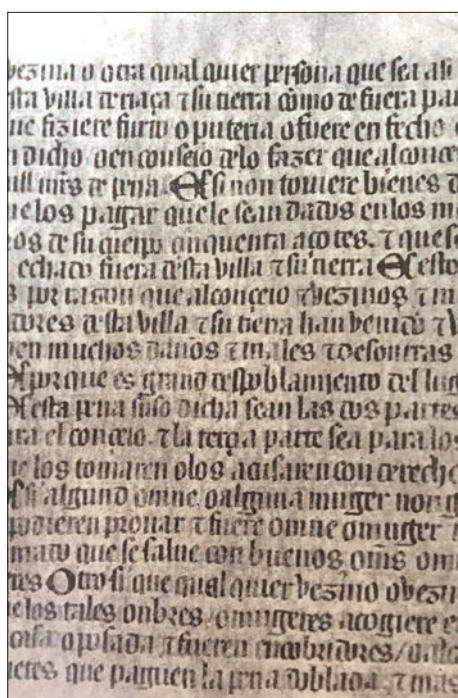 vezina o otra qual quier persona que sea asi
esta villa de riaça τ su tierra como de fuera par
que fiziere furto o puteria o fuere en fecho
dicho o en conseio de lo fazer que al conce
mill mrs de pena. E si non toviere bienes d
de los pagar que le sean dados en los m
de su cuerpo çinquenta açotes. τ que s
echado fuera desta villa τ su tierra E esto
por razon que al conçeio τ vezinos τ m
dores desta villa τ su tierra han venido τ v
en muchos daños τ males τ desonrras
E por que es grand despoblamiento del lug
E esta pena suso dicha sean las dos partes
para el conçeio. τ la terçia parte sea para los
que los tomaren o los acusaren con derecho
E si algund omne o alguna muger non
pudieren provar τ fuere omne o muger
que se salue con buenos oms om
Otro si que qual quier vezino o vezin
que los tales onbres / o mugeres acogiere e
casa o posada τ fueren encobridores /
que paguen la pena doblada. τ mas